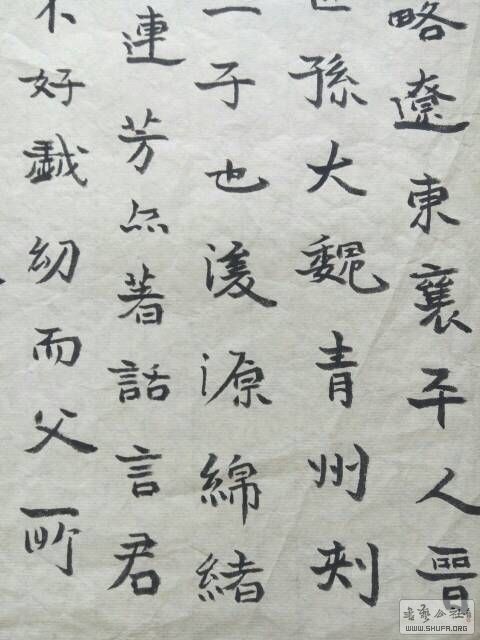 略遼東襄平人晉
孫大魏青州刺
子也浚源綿緒
連芳著話言君
不好戲幼而父所
书艺公社
WWW.SHUFA.ORG